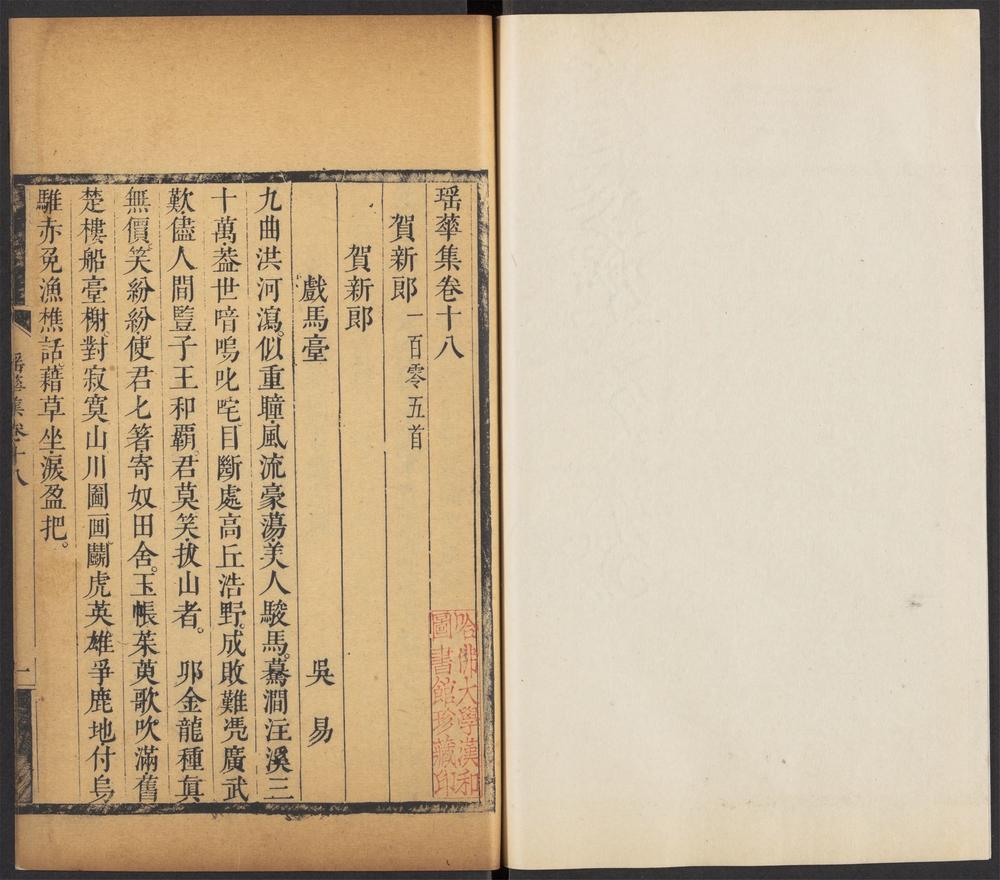 瑶蕐集卷十八
賀新郎一百零五首
賀新郎
戲馬臺　吳易
九曲洪河瀉。似重瞳、風流豪蕩、美人駿馬。驀澗注溪三
十萬、葢世喑嗚叱咤、目斷處高丘浩野。成敗難凴廣武
歎、儘人間豎子王和覇。君莫笑、拔山者。　卯金龍種眞
無價、笑紛紛、使君匕箸、寄奴田舍。玉帳茱萸歌吹滿、舊
楚樓船臺榭。對寂寞山川圖画、鬭虎英雄爭鹿地、付烏
騅赤兔漁樵話、藉草坐、淚盈把。
瑶蕐集卷十八
一
哈佛大學漢和
圖書館珍藏印